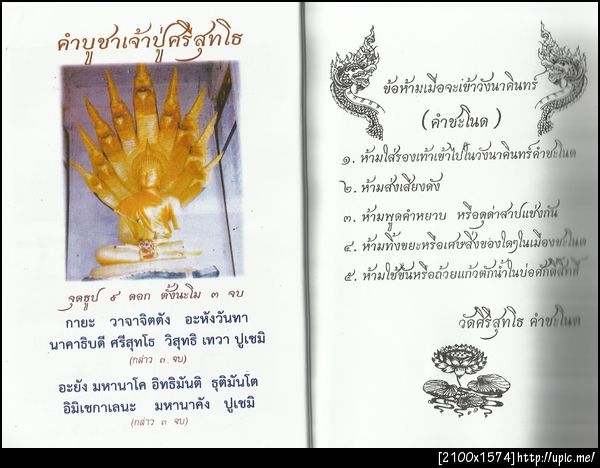 คำบูชาเจ้าปู่ศรีสุทโธ
จุดธูป ๙ ดอก ตั้งนะโม ๓ จบ
กายะ วาจาจิตตัง อะหังวันทา
นาคาธิบดี ศรีสุทโธ วิสุทธิ เทวา ปูเชมิ
(กล่าว ๓ จบ)
อะยัง มหานาโค อิทธิมันติ ธุติมันโต
อิมิเชกาเลนะ มหานาคัง ปูเชมิ
(กล่าว ๓ จบ)
ข้อห้ามเมื่อจะเข้าวังนาคินทร์
(คำชะโนด)
๑. ห้ามใส่รองเท้าเข้าไปในวังนาคินทร์คำชะโนด
๒. ห้ามส่งเสียงดัง
๓. ห้ามพูดคำหยาบ หรือดุด่าสาปแช่งกัน
๔. ห้ามทิ้งขยะหรือเศษสิ่งของใดๆในเมืองชะโนด
๕. ห้ามใช้ขันหรือถ้วยแก้วตักน้ำในบ่อศักดิ์สิทธิ์
วัดศิริสุทโธ คำชะโนด
[2100x1574]http://upic.me/